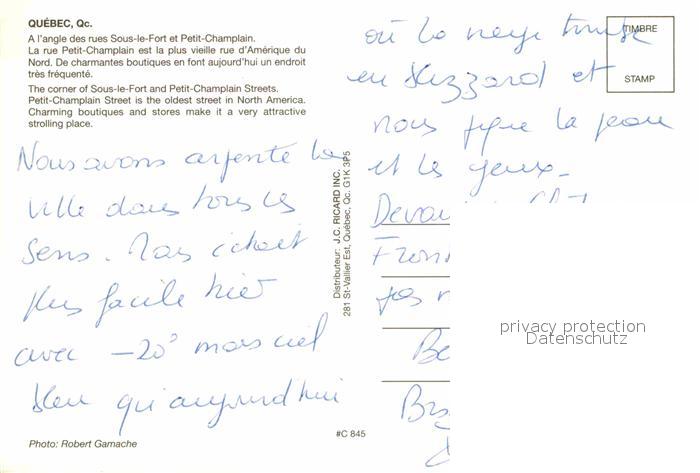 QUÉBEC, Qc.
A l'angle des rues Sous-le-Fort et Petit-Champlain.
La rue Petit-Champlain est la plus vieille rue d'Amérique du
Nord. De charmantes boutiques en font aujourd'hui un endroit
très fréquenté.
The corner of Sous-le-Fort and Petit-Champlain Streets.
Petit-Champlain Street is the oldest street in North America.
Charming boutiques and stores make it a very attractive
strolling place.
Nous avons arpenté la
ville dans tous les
sens. Mais c'était
plus facile hier
avec -20° mais ciel
bleu qu'aujourd'hui
Photo: Robert Gamache
#C 845
Distributeur: J.C. RICARD INC.
281 St-Vallier Est, Québec, Qc. G1K 3P5
TIMBRE
STAMP
où la neige tombe
en blizzard et
nous pique la peau
et les yeux.
Devan
Fron
pas
Be
privacy protection
Datenschutz